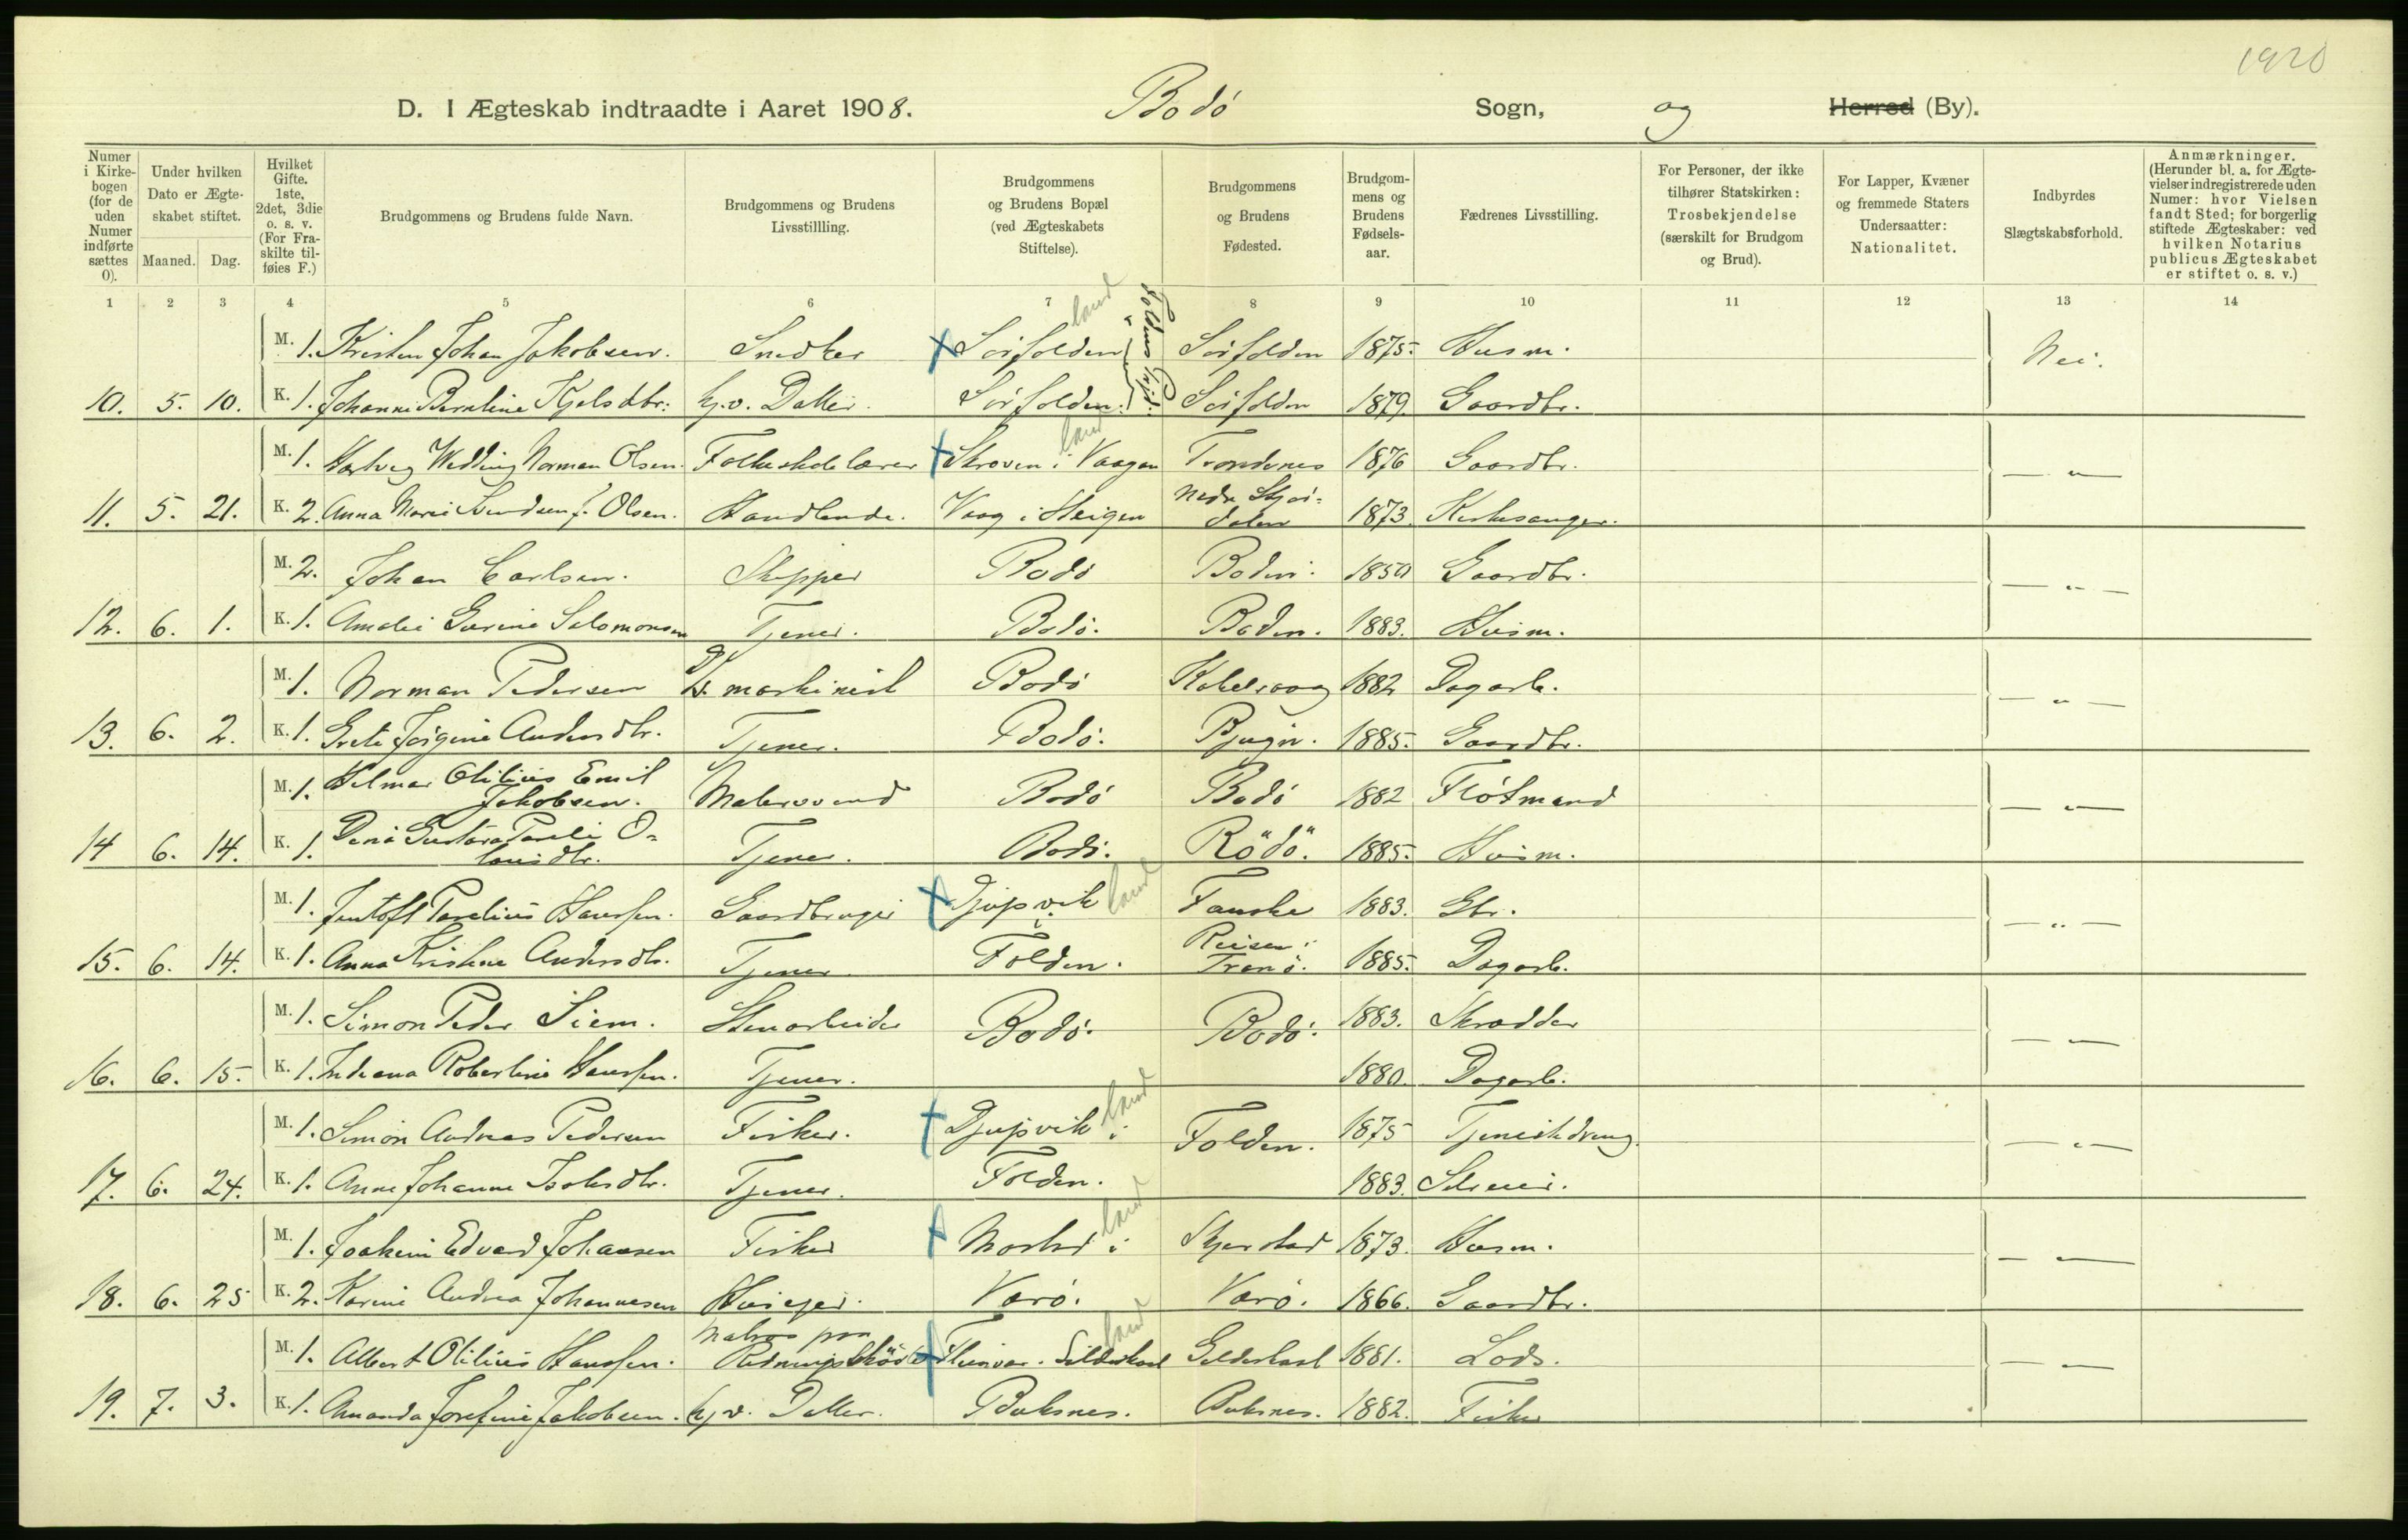 1920
D. I Ægteskab indtraadte i Aaret 1908. Bodö Sogn, og Herred (By).
Numer i Kirkebogen (for de uden Numer indførte sættes 0).
Under hvilken Dato er Ægteskabet stiftet.
Maaned. Dag.
Hvilket Gifte. 1ste, 2det, 3die o. s. v. (For Fraskilte tilføies F.)
Brudgommens og Brudens fulde Navn.
Brudgommens og Brudens Livsstillling.
Brudgommens og Brudens Bopæl (ved Ægteskabets Stiftelse).
Brudgommens og Brudens Fødested.
Brudgommens og Brudens Fødselsaar.
Fædrenes Livsstilling.
For Personer, der ikke tilhører Statskirken: Trosbekjendelse (særskilt for Brudgom og Brud).
For Lapper, Kvæner og fremmede Staters Undersaatter: Nationalitet.
Indbyrdes Slægtskabsforhold.
Anmærkninger. (Herunder bl. a. for Ægtevielser indregistrerede uden Numer: hvor Vielsen fandt Sted; for borgerlig stiftede Ægteskaber: ved hvilken Notarius publicus Ægteskabet er stiftet o. s. v.)
1 2 3 4 5 6 7 8 9 10 11 12 13 14
M. 1. Kristen Johan Jakobsen. Snedker Sörfolden land Sörfolden 1875. Husm. Nei.
10. 5. 10. K. 1. Johanne Berntine Kjelsdtr: hj.v. Datter. Sörfolden. Sörfolden 1879. Gaardbr.
M. 1. Hartvig Wedding Norman Olsen. Folkeskolelærer Skroven i Vaagan land Trondenes 1876 Gaardbr. — " —
11. 5. 21. K. 2. Anna Marie Svendsen f. Olsen. Handlende. Vaag i Steigen Nedr Stjördalen 1873. Kirkesanger.
M. 2. Johan Carlsen. Skipper Bodö Bodin. 1850 Gaardbr. — " —
12. 6. 1. K. 1. Amalie Gurine Salomonsen Tjener. Bodö. Bodin. 1883. Husm.
M. 1. Norman Pedersen maskinist Bodö Kabelvaag 1882 Dagarb. — " —
13. 6. 2. K. 1. Grete Jörgine Andersdtr. Tjener. Bodö. Bjugn. 1885. Gaardbr.
M. 1. Hilmar Otilius Emil Jakobsen. Malersvend Bodö Bodö 1882 Flötmand — " —
14 6. 14. K. 1. Dina Gustava Pareli Olaisdtr. Tjener. Bodö. Rödö. 1885. Husm.
M. 1. Jentoft Parelius Hanssen. Gaardbruger Djupvik i land Fauske 1883. Gbr. — " —
15. 6. 14. K. 1. Anna Kristine Andersdtr. Tjener Folden. Reisen i Tranö. 1885. Dagarb.
M. 1. Simon Peder Siem. Stenarbeider Bodö. Bodö. 1883. Skrædder — " —
16. 6. 15. K. 1. Indiana Robertine Hanssen. Tjener. 1880. Dagarb.
M. 1. Simon Andreas Pedersen Fisker. Djupvik i land Folden. 1875 Tjenestedreng. — " —
17. 6. 24. K. 1. Anne Johanne Isaksdtr. Tjener. Folden. 1883. Selveier.
M. 1. Joakim Edvard Johansen Fisker i land Skjerstad 1873. Husm. — " —
18. 6. 25 K. 2. Karine Andrea Johannesen Huseier. Værö. Værö. 1866. Gaardbr.
M. 1. Albert Otilius Hanssen. Matros paa Redningssköite Gildeskaal land Gildeskaal 1881. Lods. — " —
19. 7. 3. K. 1. Amanda Josefine Jakobsen. hj.v. Datter. Buksnes. Buksnes. 1882. Fisker